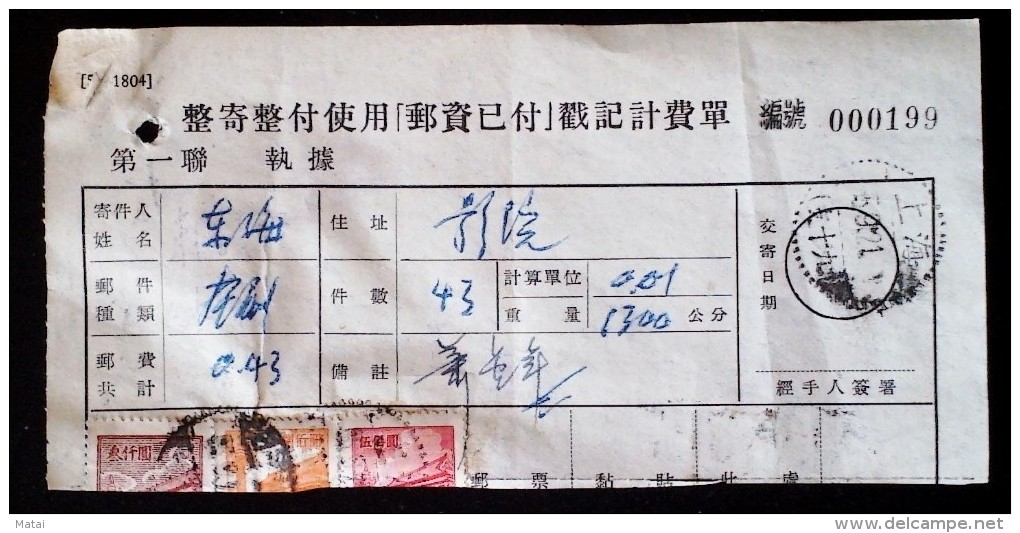 [5-1804]
整寄整付使用「郵資已付」戳記計費單 編號 000199
第一聯 執據
寄件人姓名 东海 住址 影院 交寄日期 上海
郵件種類 件數 43 計算單位 0.01
重量 1300 公分
郵費共計 0.43 備註
經手人簽署
叁仟圓 伍佰圓
郵票黏貼此處
Matai
www.delcampe.net